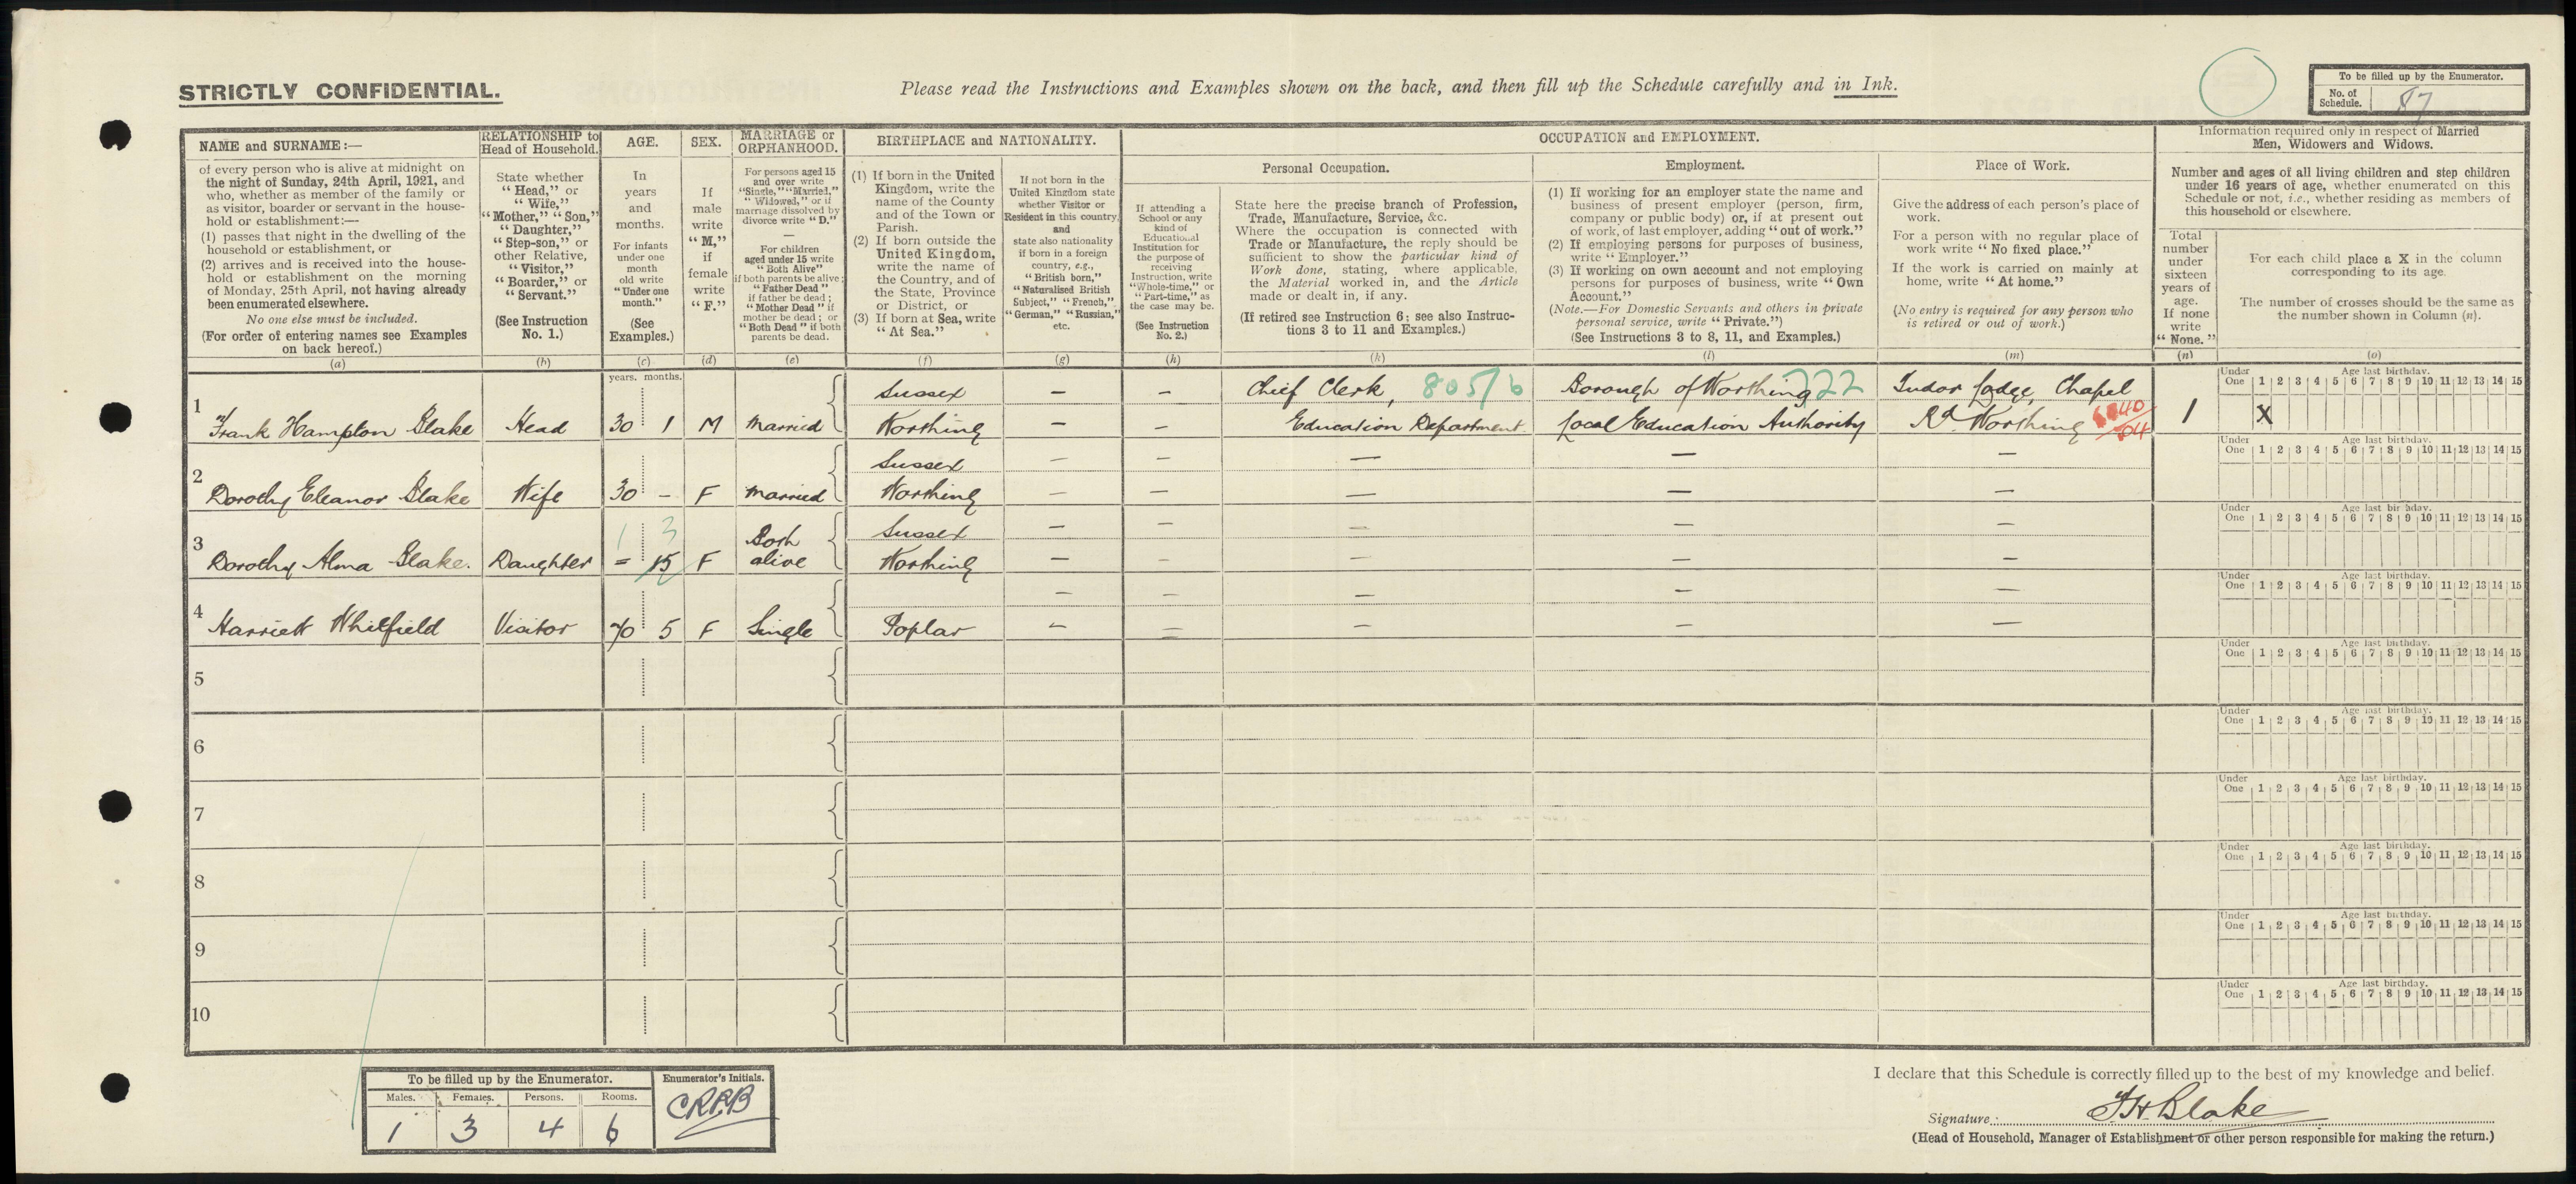 STRICTLY CONFIDENTIAL.
Please read the Instructions and Examples shown on the back, and then fill up the Schedule carefully and in Ink.
To be filled up by the Enumerator.
No. of Schedule. 87
NAME and SURNAME:—
of every person who is alive at midnight on
the night of Sunday, 24th April, 1921, and
who, whether as member of the family or
as visitor, boarder or servant in the house-
hold or establishment:—
(1) passes that night in the dwelling of the
household or establishment, or
(2) arrives and is received into the house-
hold or establishment on the morning
of Monday, 25th April, not having already
been enumerated elsewhere.
No one else must be included.
(For order of entering names see Examples
on back hereof.)
(a)
RELATIONSHIP to
Head of Household.
State whether
"Head," or
"Wife,"
"Mother," "Son,"
"Daughter,"
"Step-son," or
other Relative,
"Visitor,"
"Boarder," or
"Servant."
(See Instruction
No. 1.)
(b)
AGE.
In
years
and
months.
For infants
under one
month
old write
"Under one
month."
(See
Examples.)
(c)
SEX.
If
male
write
"M,"
if
female
write
"F."
(d)
MARRIAGE or
ORPHANHOOD.
For persons aged 15
and over write
"Single," "Married,"
"Widowed," or if
marriage dissolved by
divorce write "D."
—
For children
aged under 15 write
"Both Alive"
if both parents be alive;
"Father Dead"
if father be dead;
"Mother Dead" if
mother be dead; or
"Both Dead" if both
parents be dead.
(e)
BIRTHPLACE and NATIONALITY.
(1) If born in the United
Kingdom, write the
name of the County
and of the Town or
Parish.
(2) If born outside the
United Kingdom,
write the name of
the Country, and of
the State, Province
or District, or
(3) If born at Sea, write
"At Sea."
(f)
If not born in the
United Kingdom state
whether Visitor or
Resident in this country,
and
state also nationality
if born in a foreign
country, e.g.,
"British born,"
"Naturalised British
Subject," "French,"
"German," "Russian,"
etc.
(g)
OCCUPATION and EMPLOYMENT.
If attending a
School or any
kind of
Educational
Institution for
the purpose of
receiving
Instruction, write
"Whole-time," or
"Part-time," as
the case may be.
(See Instruction
No. 2.)
(h)
Personal Occupation.
State here the precise branch of Profession,
Trade, Manufacture, Service, &c.
Where the occupation is connected with
Trade or Manufacture, the reply should be
sufficient to show the particular kind of
Work done, stating, where applicable,
the Material worked in, and the Article
made or dealt in, if any.
(If retired see Instruction 6; see also Instruc-
tions 3 to 11 and Examples.)
(k)
Employment.
(1) If working for an employer state the name and
business of present employer (person, firm,
company or public body) or, if at present out
of work, of last employer, adding "out of work."
(2) If employing persons for purposes of business,
write "Employer."
(3) If working on own account and not employing
persons for purposes of business, write "Own
Account."
(Note.—For Domestic Servants and others in private
personal service, write "Private.")
(See Instructions 3 to 8, 11, and Examples.)
(l)
Place of Work.
Give the address of each person's place of
work.
For a person with no regular place of
work write "No fixed place."
If the work is carried on mainly at
home, write "At home."
(No entry is required for any person who
is retired or out of work.)
(m)
Information required only in respect of Married
Men, Widowers and Widows.
Number and ages of all living children and step children
under 16 years of age, whether enumerated on this
Schedule or not, i.e., whether residing as members of
this household or elsewhere.
Total
number
under
sixteen
years of
age.
If none
write
"None."
(n)
For each child place a X in the column
corresponding to its age.
The number of crosses should be the same as
the number shown in Column (n).
(o)
years. months.
Age last birthday.
Under One 1 2 3 4 5 6 7 8 9 10 11 12 13 14 15
1 Frank Hampton Blake Head 30 1 M Married Sussex Worthing — — — — Chief Clerk, 805/6 Education Department. Borough of Worthing 722 Local Education Authority Tudor Lodge, Chapel Rd Worthing 1 X
Age last birthday.
Under One 1 2 3 4 5 6 7 8 9 10 11 12 13 14 15
2 Dorothy Eleanor Blake Wife 30 - F Married Sussex Worthing — — — — — — — — — —
Age last birthday.
Under One 1 2 3 4 5 6 7 8 9 10 11 12 13 14 15
3 Dorothy Alma Blake. Daughter 1 3 = 15 F Both alive Sussex Worthing — — — — — — — — — —
Age last birthday.
Under One 1 2 3 4 5 6 7 8 9 10 11 12 13 14 15
4 Harriett Whitfield Visitor 70 5 F Single Poplar — — — — — — — — — —
Age last birthday.
Under One 1 2 3 4 5 6 7 8 9 10 11 12 13 14 15
5
Age last birthday.
Under One 1 2 3 4 5 6 7 8 9 10 11 12 13 14 15
6
Age last birthday.
Under One 1 2 3 4 5 6 7 8 9 10 11 12 13 14 15
7
Age last birthday.
Under One 1 2 3 4 5 6 7 8 9 10 11 12 13 14 15
8
Age last birthday.
Under One 1 2 3 4 5 6 7 8 9 10 11 12 13 14 15
9
Age last birthday.
Under One 1 2 3 4 5 6 7 8 9 10 11 12 13 14 15
10
Age last birthday.
Under One 1 2 3 4 5 6 7 8 9 10 11 12 13 14 15
To be filled up by the Enumerator.
Males. Females. Persons. Rooms.
1 3 4 6
Enumerator's Initials.
CRRB
I declare that this Schedule is correctly filled up to the best of my knowledge and belief.
Signature: FH Blake
(Head of Household, Manager of Establishment or other person responsible for making the return.)